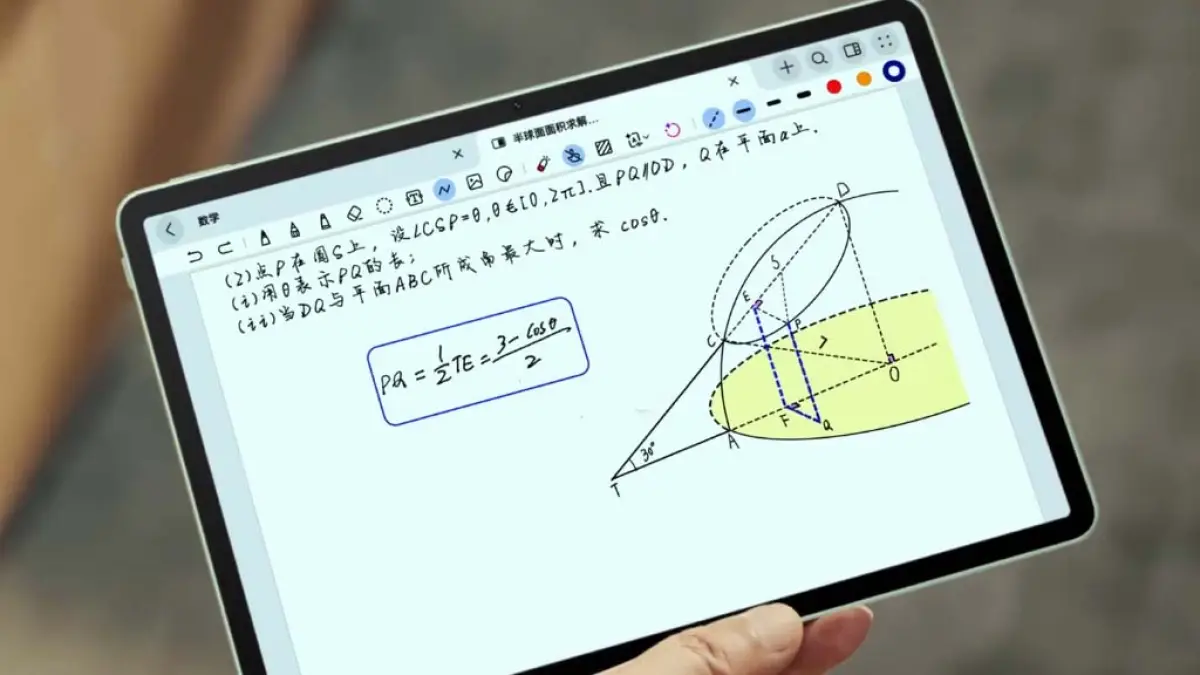 半球面面积求解...
数学
(2)点P在圆S上,设∠CSP=θ,θ∈[0,2π].且PQ∥OD,Q在平面α上.
(i)用θ表示PQ的长;
(ii)当DQ与平面ABC所成角最大时,求cosθ.
PQ=1/2TE=3-cosθ/2
D
S
E
P
C
O
F
Q
A
30°
T